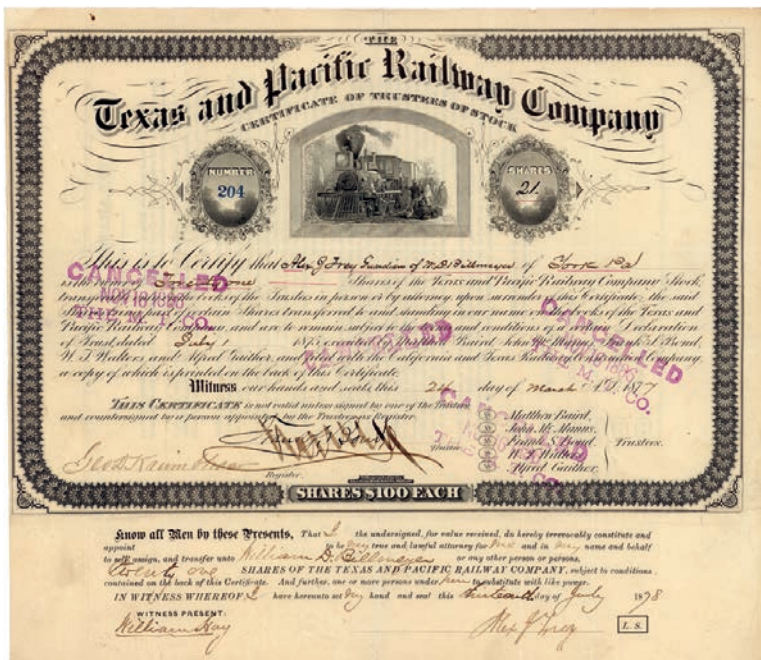 THE
Texas and Pacific Railway Company
CERTIFICATE OF TRUSTEES OF STOCK
NUMBER
204
SHARES
21
This is to Certify that Alex J Frey Guardian of W. D. Billmeyer of York Pa
is the owner of Twenty one Shares of the Texas and Pacific Railway Company Stock
transferable on the books of the Trustees in person or by attorney upon surrender of this Certificate, the said
Shares being certain Shares transferred to and standing in our name on the books of the Texas and
Pacific Railway Company, and are to remain subject to the terms and conditions of a certain Declaration
of Trust, dated July 1 187 executed by Matthew Baird, John Mc.Manus, Frank S. Bond,
W. T. Walters and Alfred Gaither, and filed with the California and Texas Railway Construction Company,
a copy of which is printed on the back of this Certificate.
Witness our hands and seals, this 24 day of March A.D. 1877
THIS CERTIFICATE is not valid unless signed by one of the Trustees
and countersigned by a person appointed by the Trustees as Register.
Matthew Baird,
John Mc.Manus,
Frank S. Bond,
W. T. Walters,
Alfred Gaither,
Trustees.
Trustee
Register.
SHARES $100 EACH
CANCELLED
NOV 16 1886
THE M. T. CO.
CANCELLED
CANCELLED
NOV 16 1886
THE M. T. CO.
Know all Men by these Presents, That I the undersigned, for value received, do hereby irrevocably constitute and
appoint to be my true and lawful attorney for me and in my name and behalf
to sell, assign, and transfer unto William D. Billmeyer or any other person or persons,
twenty one SHARES OF THE TEXAS AND PACIFIC RAILWAY COMPANY, subject to conditions
contained on the back of this Certificate. And further, one or more persons under him to substitute with like power.
IN WITNESS WHEREOF I have hereunto set my hand and seal this thirteenth day of July 1878
WITNESS PRESENT:
William Hay
Alex J Frey
L. S.